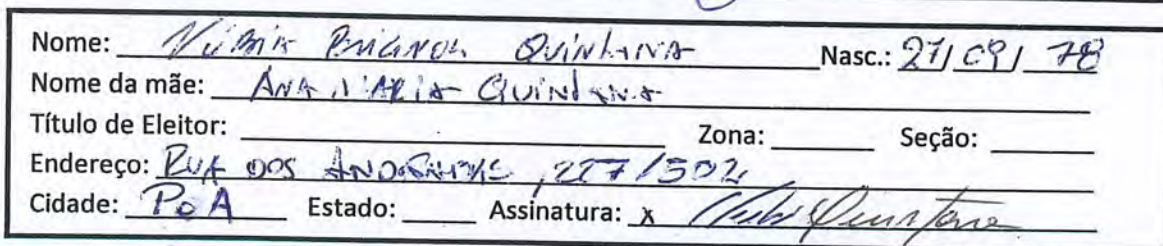 Nome: Núbia Brignol Quintana Nasc.: 27/09/78
Nome da mãe: Ana Maria Quintana
Título de Eleitor: Zona: Seção:
Endereço: Rua dos Andradas, 227/502
Cidade: PoA Estado: Assinatura: x Quintana